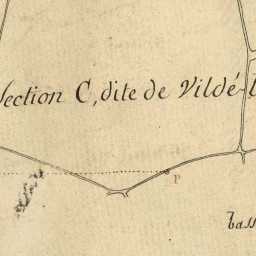 Section C, dite de Vildé-
P
bass